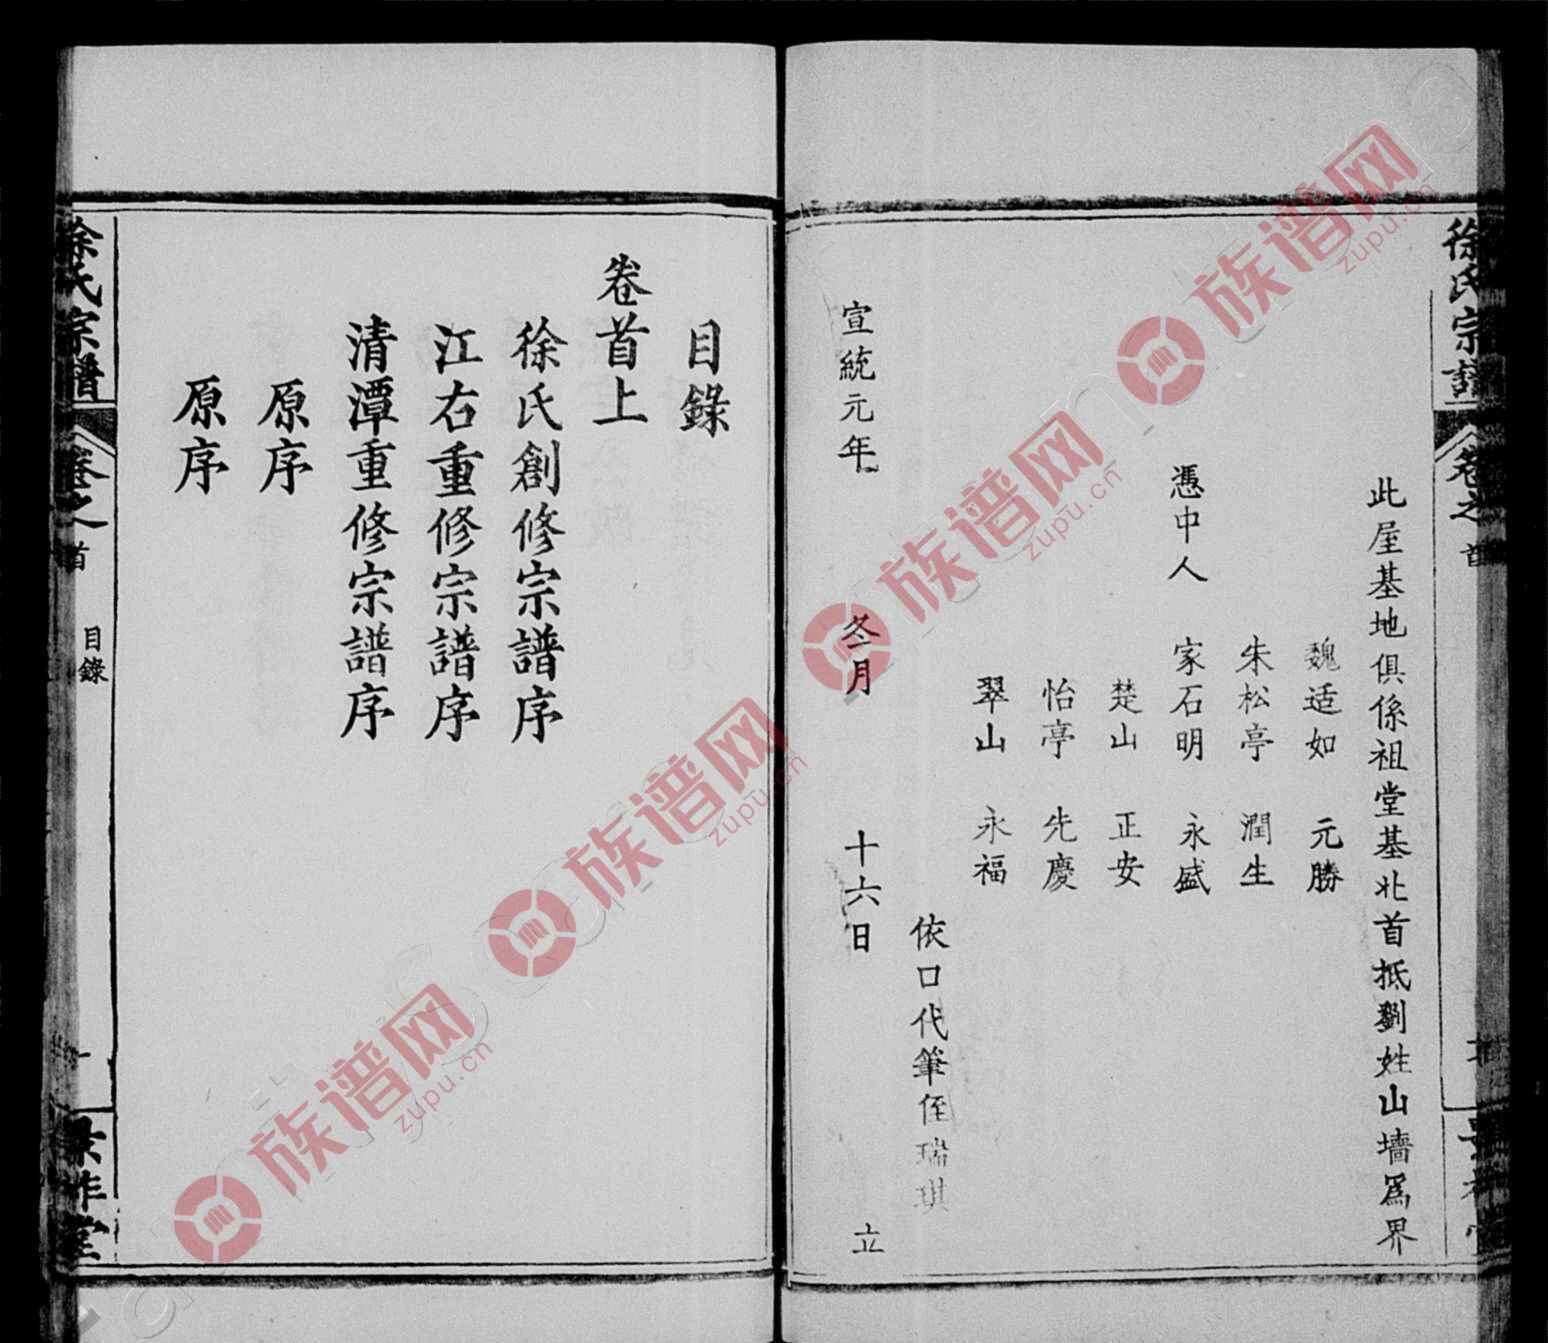 徐氏宗譜
卷之首
此屋基地俱係祖堂基北首抵劉姓山墻爲界
魏适如 元勝
朱松亭 潤生
憑中人 家石明 永盛
楚山 正安
怡亭 先慶
翠山 永福
依口代筆侄瑞琪
宣統元年 冬月 十六日 立
目錄
卷首上
徐氏創修宗譜序
江右重修宗譜序
清潭重修宗譜序
原序
原序
徐氏宗譜
卷之首
目錄
一
族谱网
zupu.cn
族谱网
zupu.cn
族谱网
zupu.cn
族谱网
zupu.cn